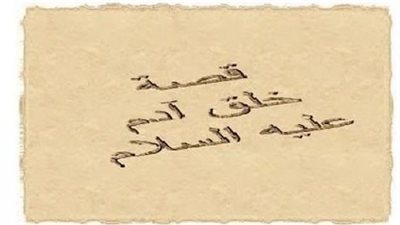 قصة
خلق آدم
عليه السلام